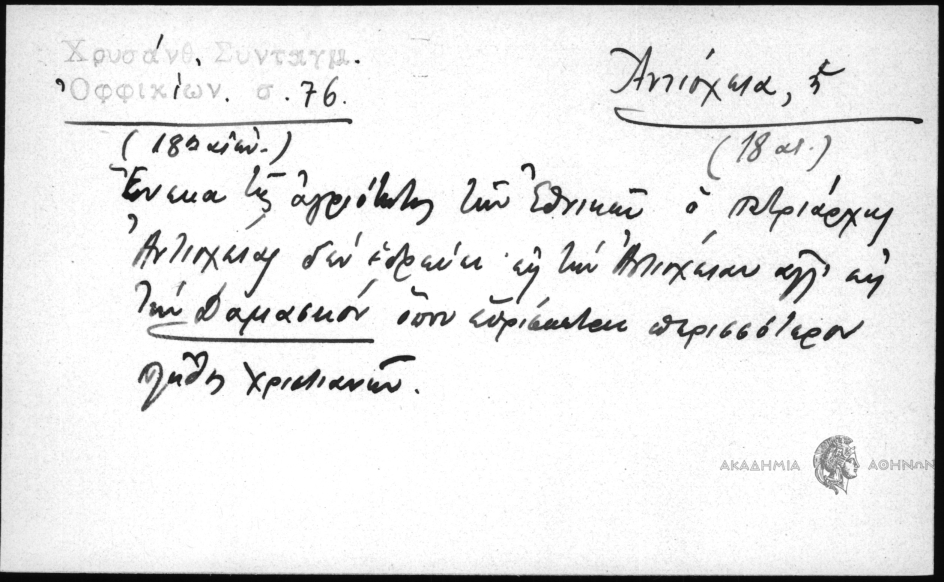 Χρυσάνθ. Συνταγμ.
Ὀφφικίων. σ. 76.
(18ος αἰών.)
Ἀντιόχεια, ἡ
(18 αι.)
Ἕνεκα τῆς ἀγριότητος τῶν Ἐθνικῶν ὁ πατριάρχης
Ἀντιοχείας δέν ἑδρεύει εἰς τήν Ἀντιόχειαν ἀλλ' εἰς
τήν Δαμασκόν ὅπου εὑρίσκεται περισσότερον
πλῆθος χριστιανῶν.
ΑΚΑΔΗΜΙΑ ΑΘΗΝΩΝ